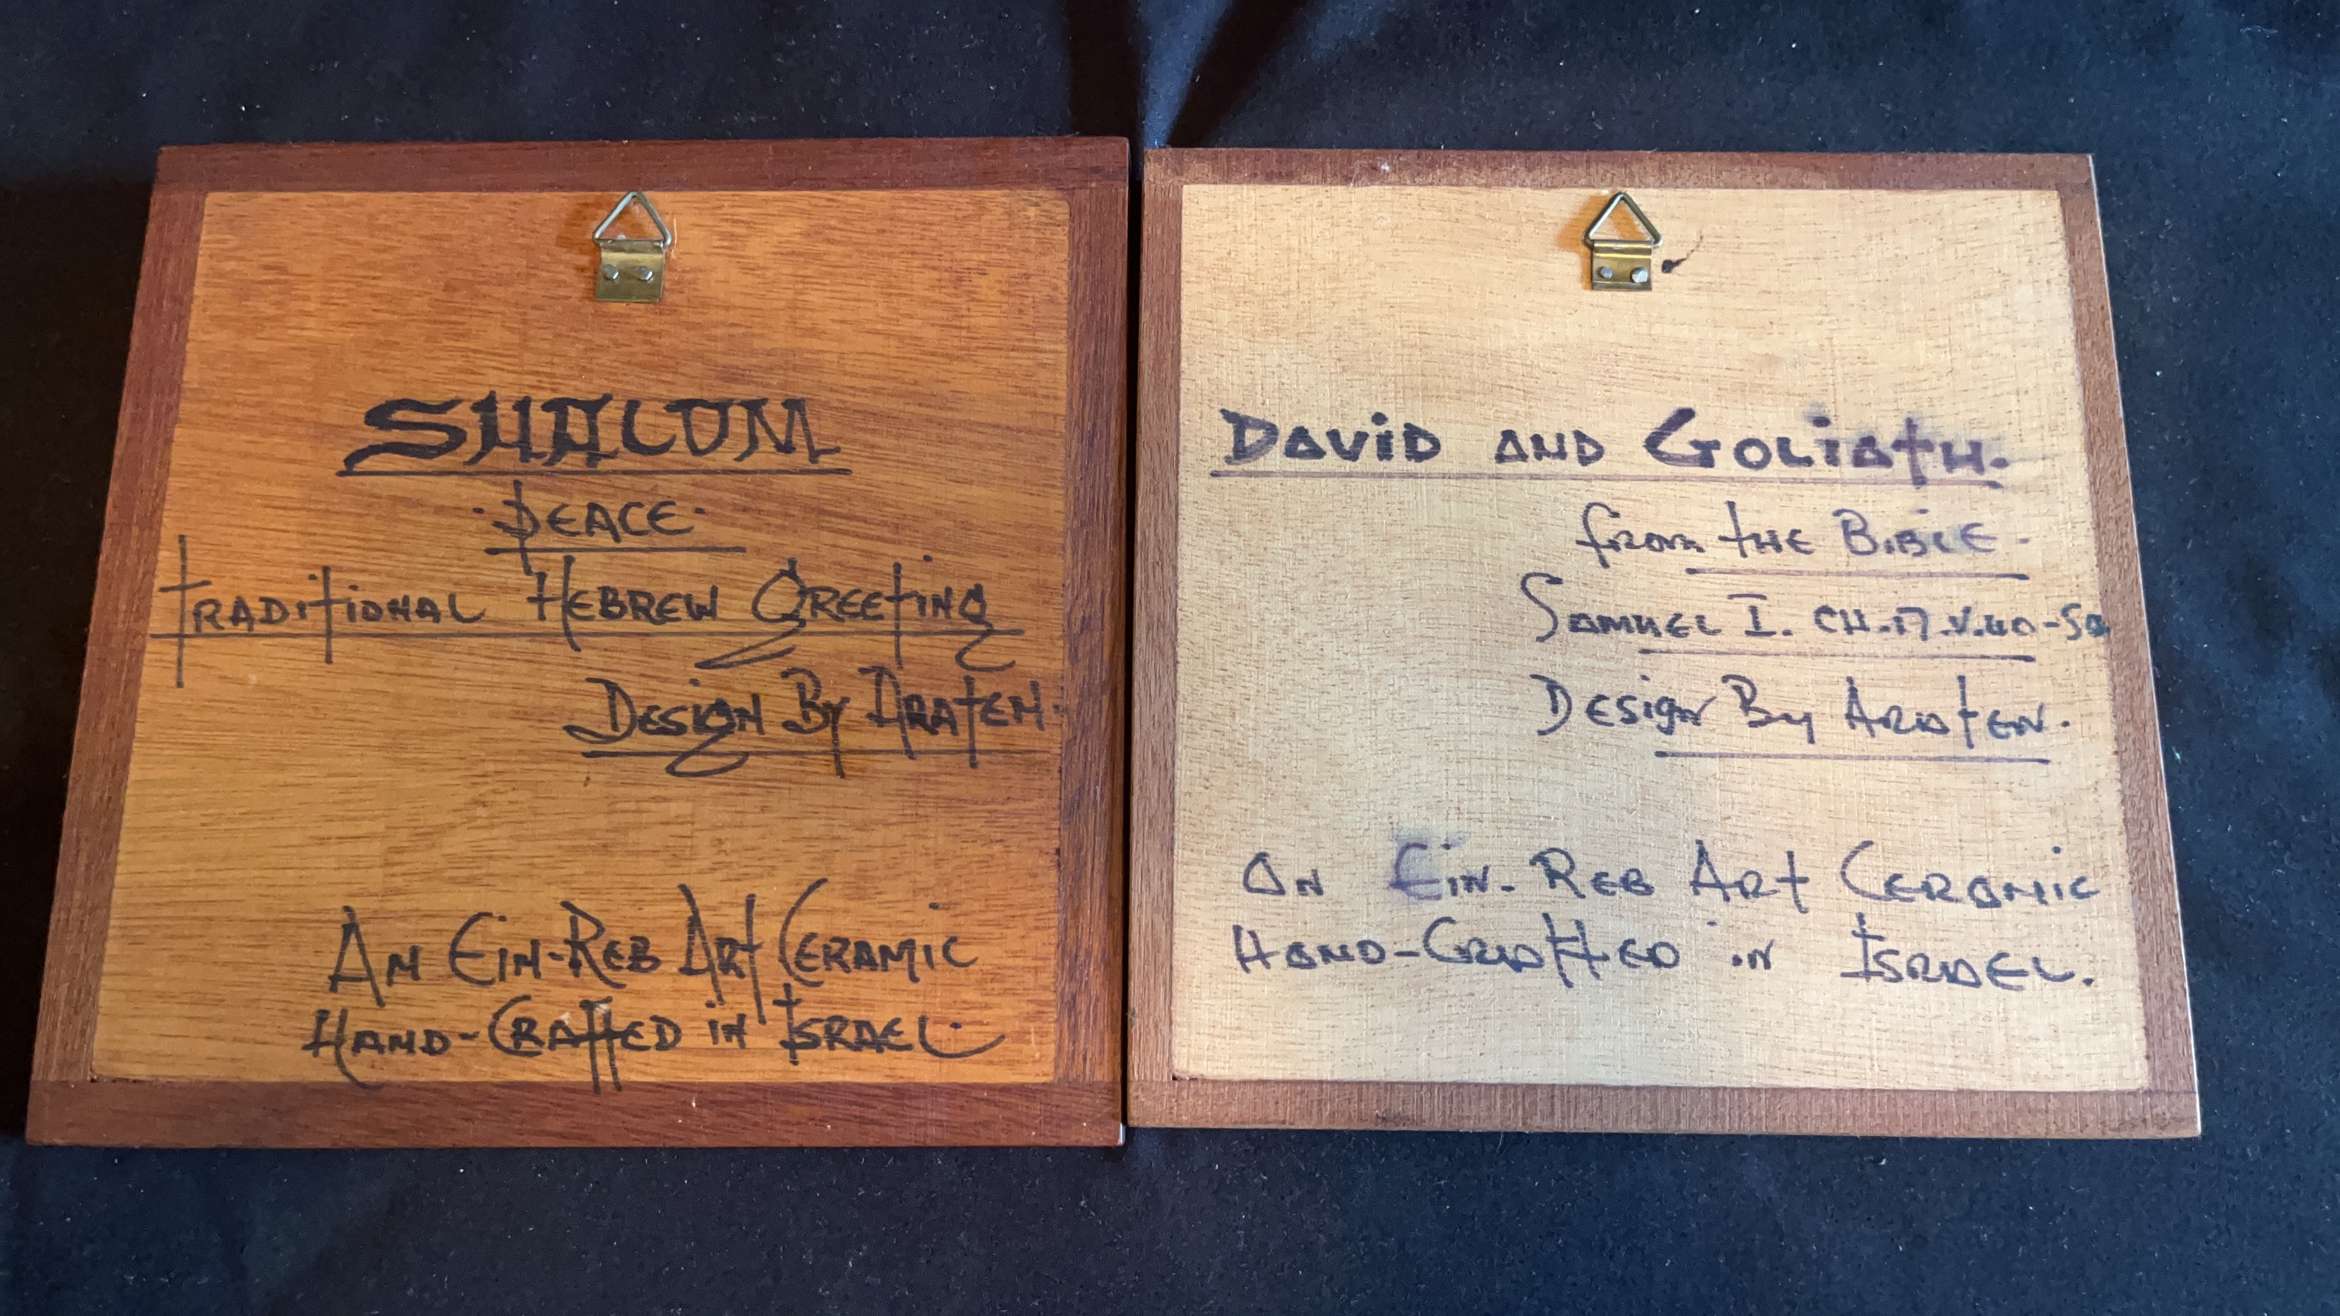 SHALOM
·PEACE·
TRADITIONAL HEBREW GREETING
DESIGN BY ARATEN.
AN EIN-REB ART CERAMIC
HAND-CRAFTED IN ISRAEL.
DAVID AND GOLIATH.
from THE BIBLE.
SAMUEL I. CH.17.V.40-50
DESIGN BY ARATEN.
AN EIN-REB ART CERAMIC
HAND-CRAFTED IN ISRAEL.